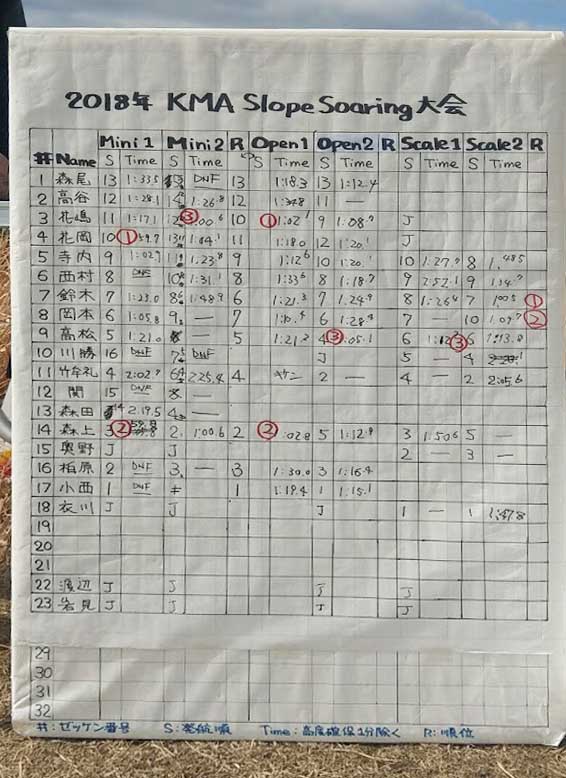 2018年 KMA Slope Soaring 大会
Mini 1 Mini 2 R Open1 Open2 R Scale1 Scale2 R
# Name S Time S Time S Time S Time S Time S Time
1 森尾 13 1:33.5 DNF 13 1:18.3 13 1:12.4
2 高谷 12 1:28.1 1:26.8 12 1:34.8 11 —
3 花嶋 11 1:17.1 ③ 10 ① 1:02 9 1:08.9 J
4 花岡 10 ① 59.7 1:04.1 11 1:18.0 12 1:20.1 J
5 寺内 9 1:02.7 1:23.8 9 1:12.6 10 1:20.1 10 1:27.9 8 1.48.5
6 西村 8 DNF 1:31.1 8 1:33.6 8 1:18.7 9 2:52.1 9
7 鈴木 7 1:23.0 1:48.9 6 1:21.3 7 1:24.9 8 1:26.4 7 ①
8 岡本 6 1:05.8 9 — 7 6 1:28.8 7 — 10 1:09.7 ②
9 高松 5 1:21.0 — 5 1:21.2 ③ 1:05.1 6 1:12 ③ 1:13.8
10 川勝 16 DNF DNF J 5 — 4
11 竹牟礼 4 2:02.9 2:25.8 4 キケン 2 — 4 — 2 2:05.6
12 関 15 DNF —
13 森田 14 2:19.5 4 —
14 森上 3 ② 2 1:00.6 2 ② 1:02.8 5 1:12.9 3 1:50.6 5 —
15 奥野 J J 2 — 3 —
16 柏原 2 DNF 3 — 3 1:30.0 3 1:16.4
17 小西 1 DNF 1 1:19.4 1 1:15.1
18 衣川 J J J 1 — 1 1:47.8
19
20
21
22 渡辺 J J J J
23 岩見 J J J J
29
30
31
32
#: ゼッケン番号 S: 発航順 Time: 高度確保1分除く R: 順位